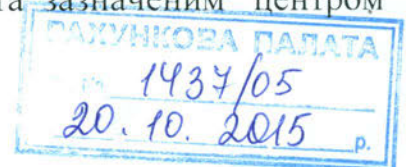 та зазначеним центром
РАХУНКОВА ПАЛАТА
№ 1437/05
20. 10. 2015 р.